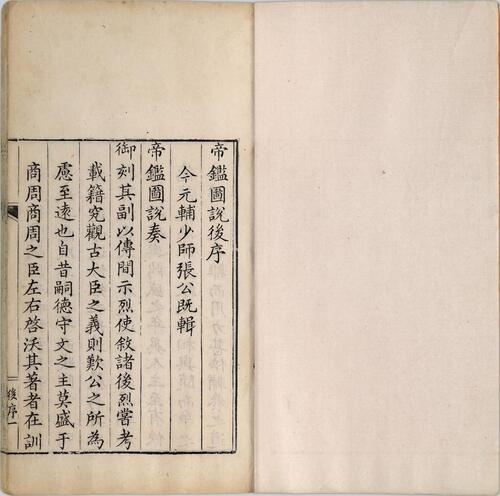 帝鑑圖說後序
今元輔少師張公旣輯
帝鑑圖說奏
御刻其副以傳間示烈使敘諸後烈嘗考
載籍究觀古大臣之義則歎公之所為
慮至遠也自昔嗣德守文之主莫盛于
商周商周之臣左右啓沃其著者在訓
後序一